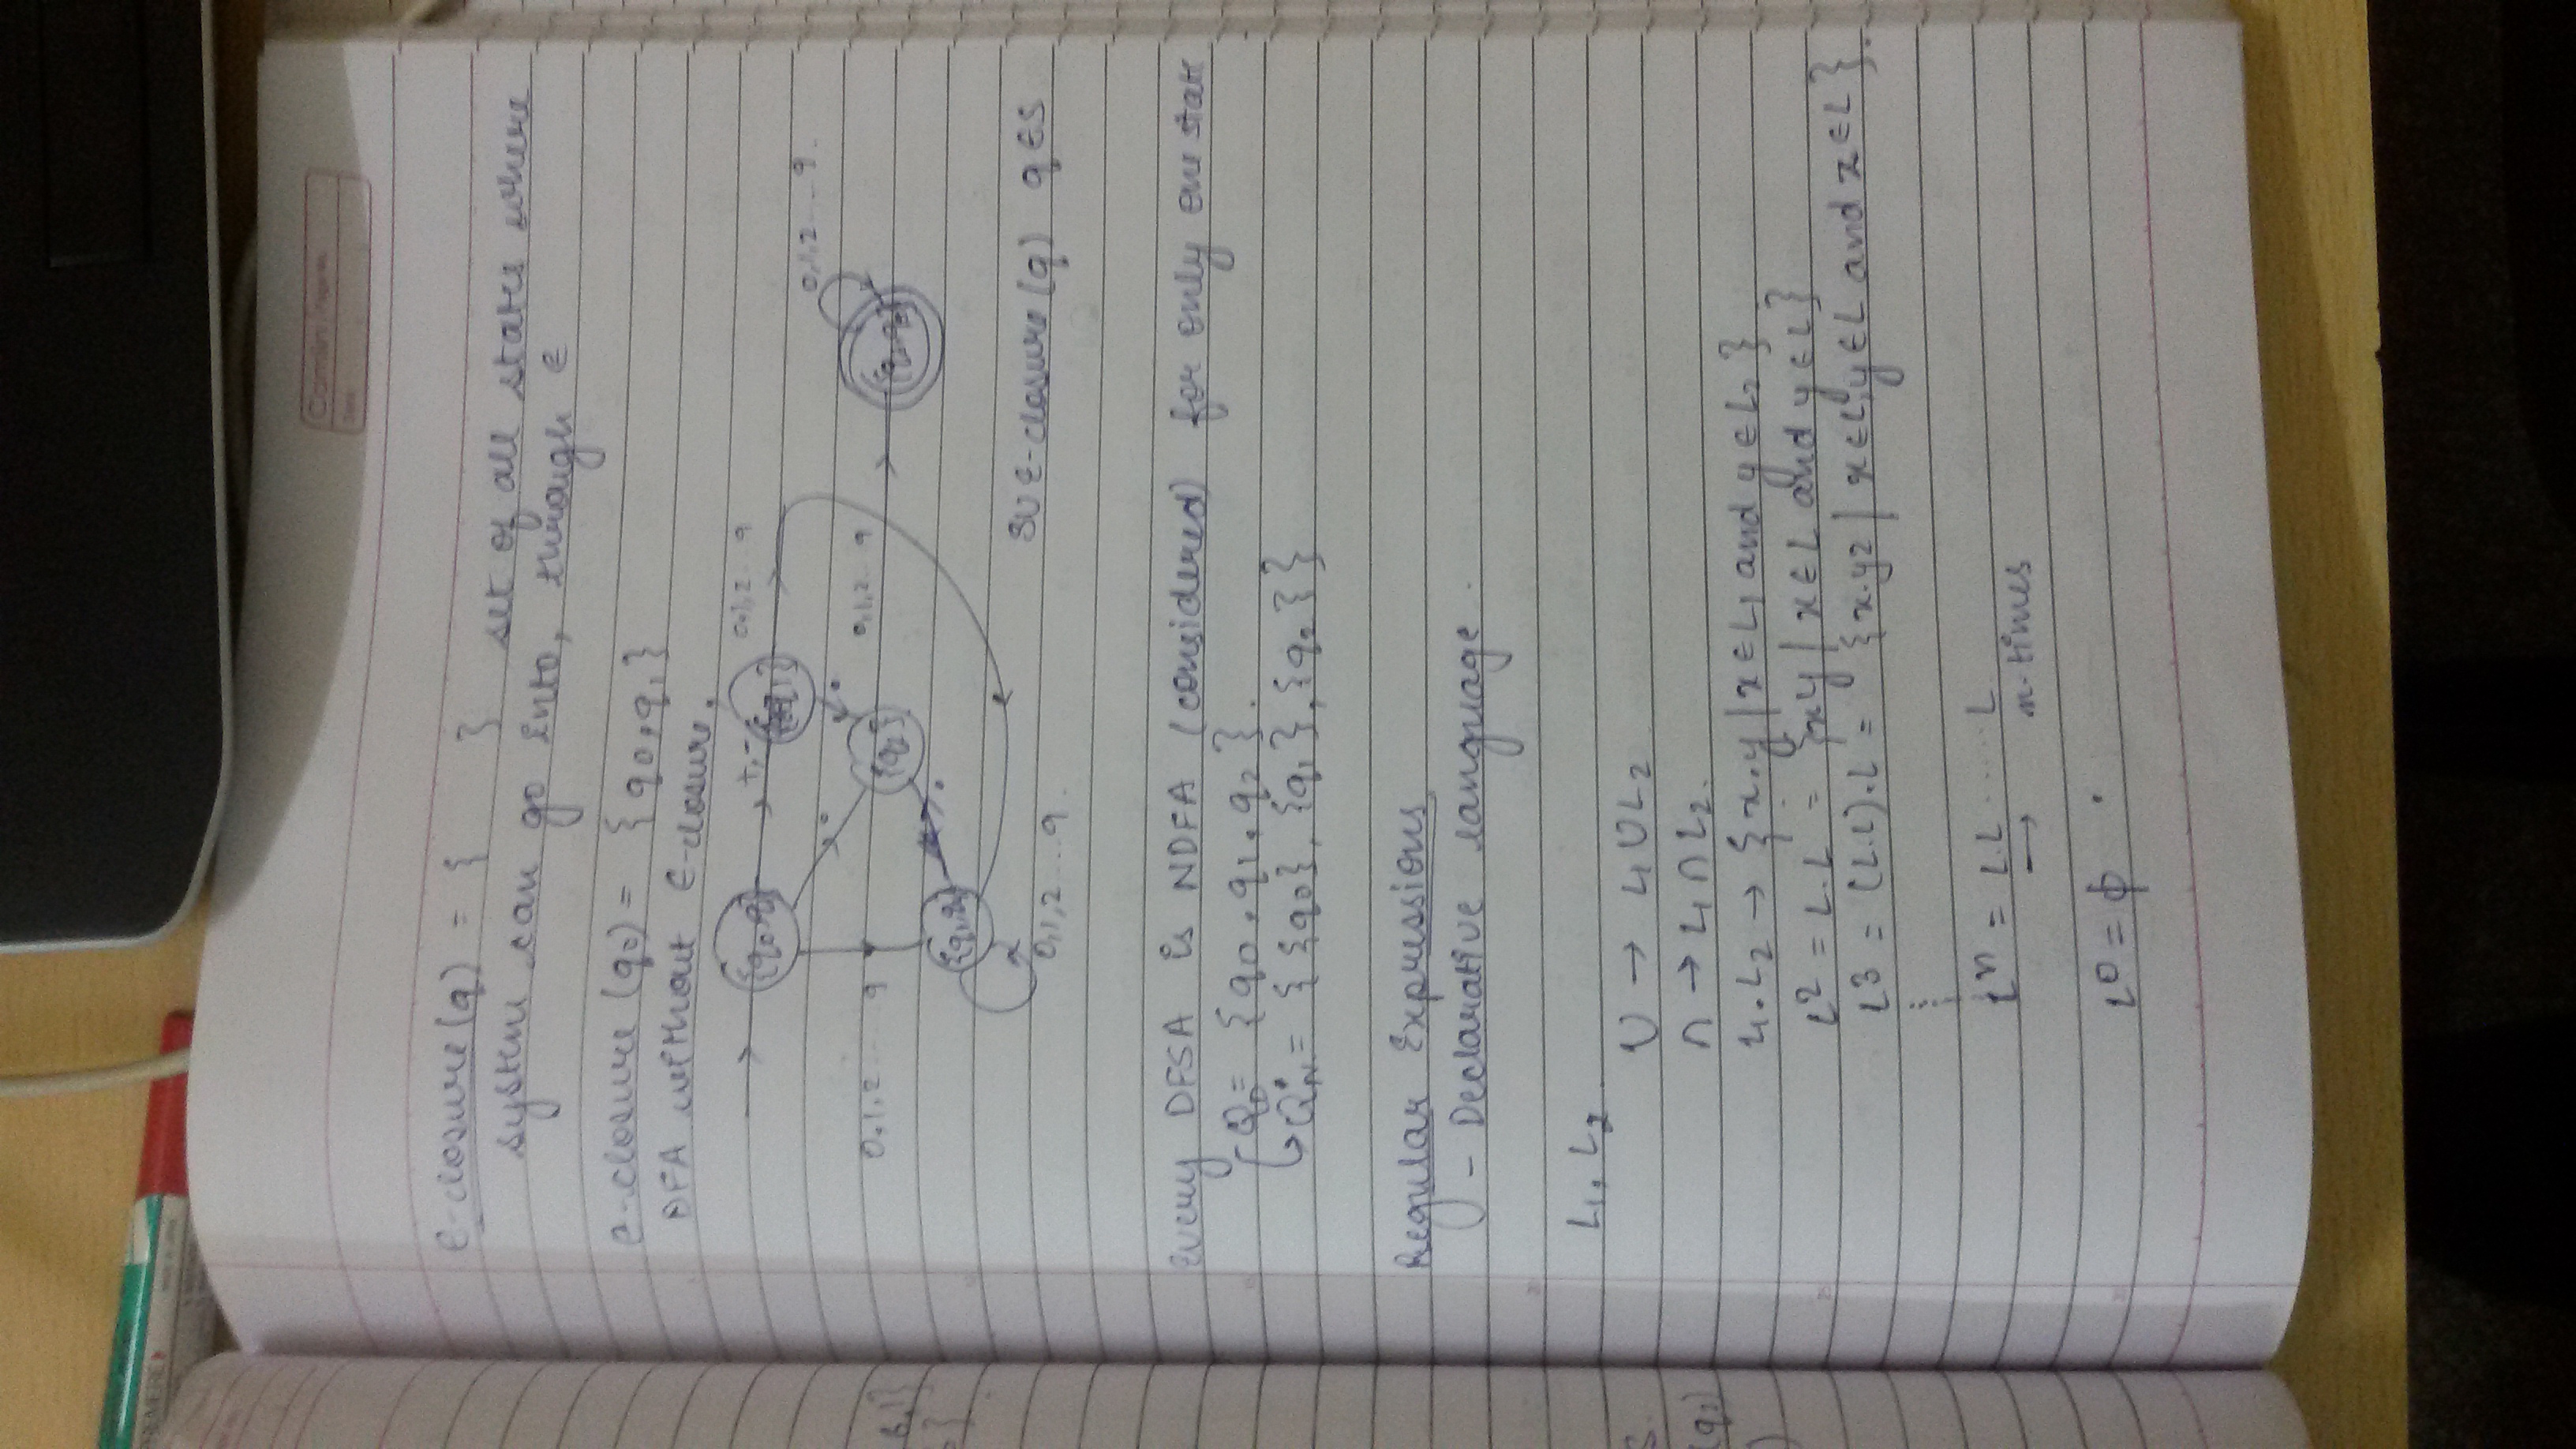 PREMERE
Camlin
Date
ε-closure(q) = { } set of all states where
system can go into, through ε
ε-closure (q0) = {q0, q1}
DFA without ε-closure.
{q0, q1}
+, -
{q1}
0,1,2...9
.
.
0,1,2.....9
{q2}
0,1,2...9
0,1,2....9.
{q1,
.
0,1,2...9.
SUε-closure(q) q∈S
Every DFSA is NDFA (considered) for only one state
QD = {q0, q1, q2}.
QN = { {q0}, {q1}, {q2} }
Regular Expressions
- Declarative language.
L1, L2
U → L1UL2
∩ → L1∩L2.
L1.L2 → {x.y | x∈L1 and y∈L2}
L² = L.L = {xy | x∈L and y∈L}
L³ = (L.L).L = {x.yz | x∈L, y∈L and z∈L}.
Lⁿ = L.L ..... L
→ n-times
L⁰ = ϕ
(q2)